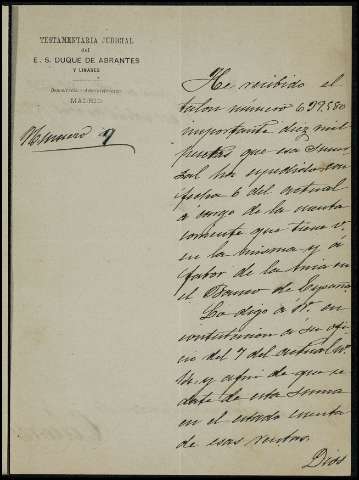 TESTAMENTARIA JUDICIAL
del
E. S. DUQUE DE ABRANTES
Y LINARES
MADRID
Numero 9
He recibido el
talon número 692580
importante diez mil
pesetas que esa Sucur
sal ha espedido con
fecha 6 del actual
á cargo de la cuenta
corriente que tiene V.
en la misma y á
favor de la mia en
el Banco de España
Lo digo á V. en
contestacion á su ofi
cio del 7 del actual nº
y á fin de que se
date de esta suma
en el estado cuenta
de esas rentas.
Dios